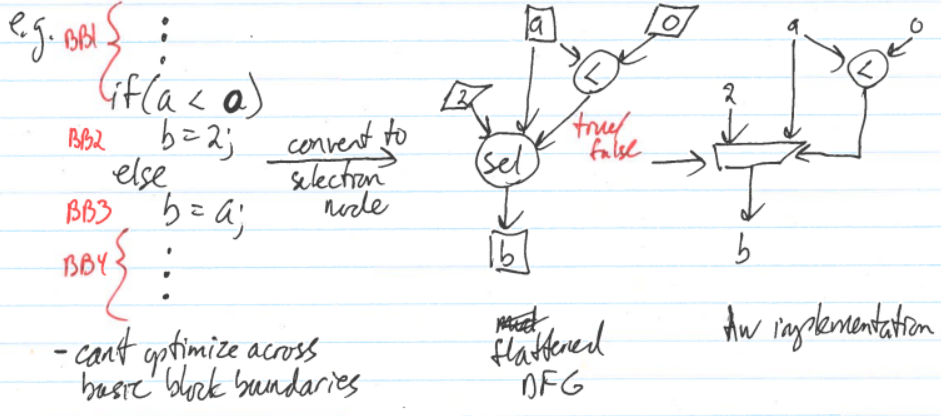 e.g.
BB1
if(a < 0)
BB2 b = 2;
else
BB3 b = a;
BB4
- cant optimize across
basic block boundaries
convert to
selection
node
a 0
<
2
true/
false
sel
b
flattened
DFG
a 0
<
2
b
hw implementation